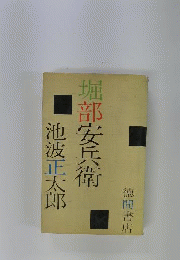 堀部安兵衛
池波正太郎
徳間書店